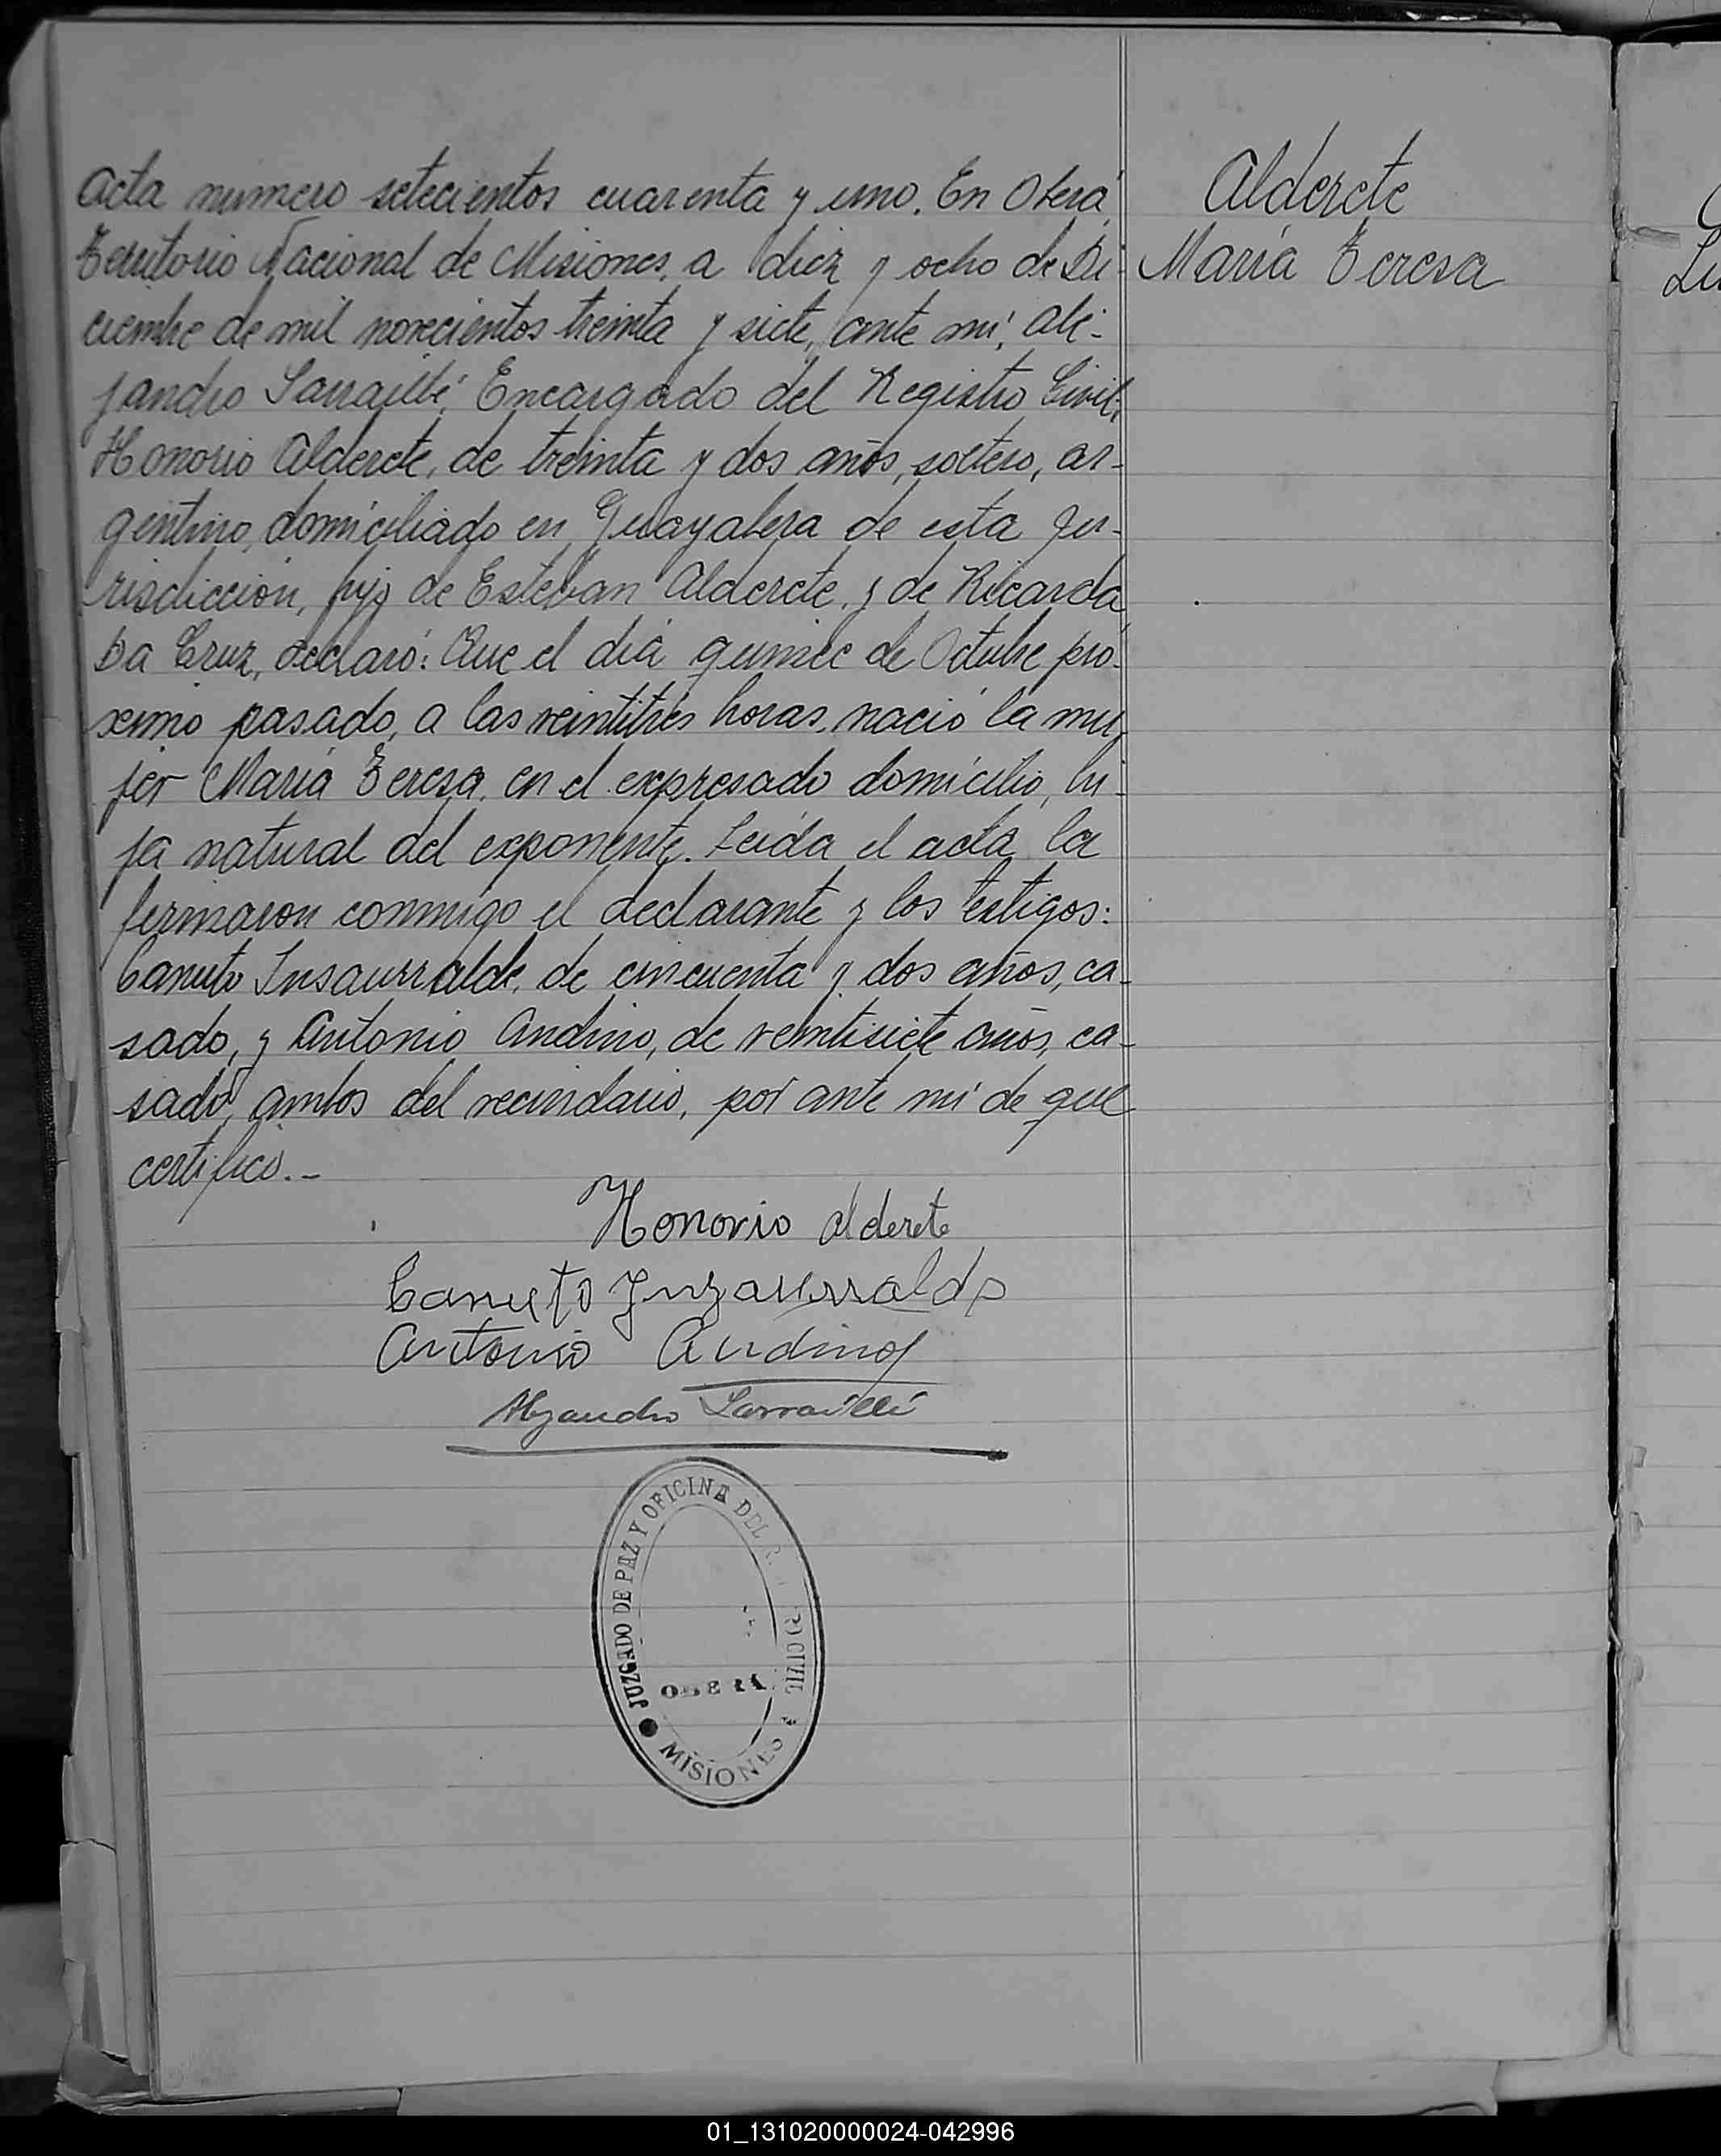 Acta numero setecientos cuarenta y uno. En Oberá,
Territorio Nacional de Misiones, a diez y ocho de Di-
ciembre de mil novecientos treinta y siete, ante mi, Ale-
jandro Sarraillé, Encargado del Registro Civil,
Honorio Alderete, de treinta y dos años, soltero, ar-
gentino, domiciliado en Guayabera de esta Ju-
risdicción, hijo de Esteban Alderete, y de Ricarda
Da Cruz, declaró: Que el dia quince de Octubre pró-
ximo pasado, a las veintitrés horas, nació la mu-
jer Maria Teresa, en el expresado domicilio, hi-
ja natural del exponente. Leida el acta la
firmaron conmigo el declarante y los testigos:
Canuto Insaurralde, de cincuenta y dos años, ca-
sado, y Antonio Andino, de veintisiete años, ca-
sado, ambos del vecindario, por ante mi de que
certifico.-
Honorio Alderete
Canuto Inzaurralde
Antonio Andino
Alejandro Sarraillé
JUZGADO DE PAZ Y OFICINA DEL R TRO CIVIL
OBERÁ
MISIONES
Alderete
Maria Teresa
01_131020000024-042996